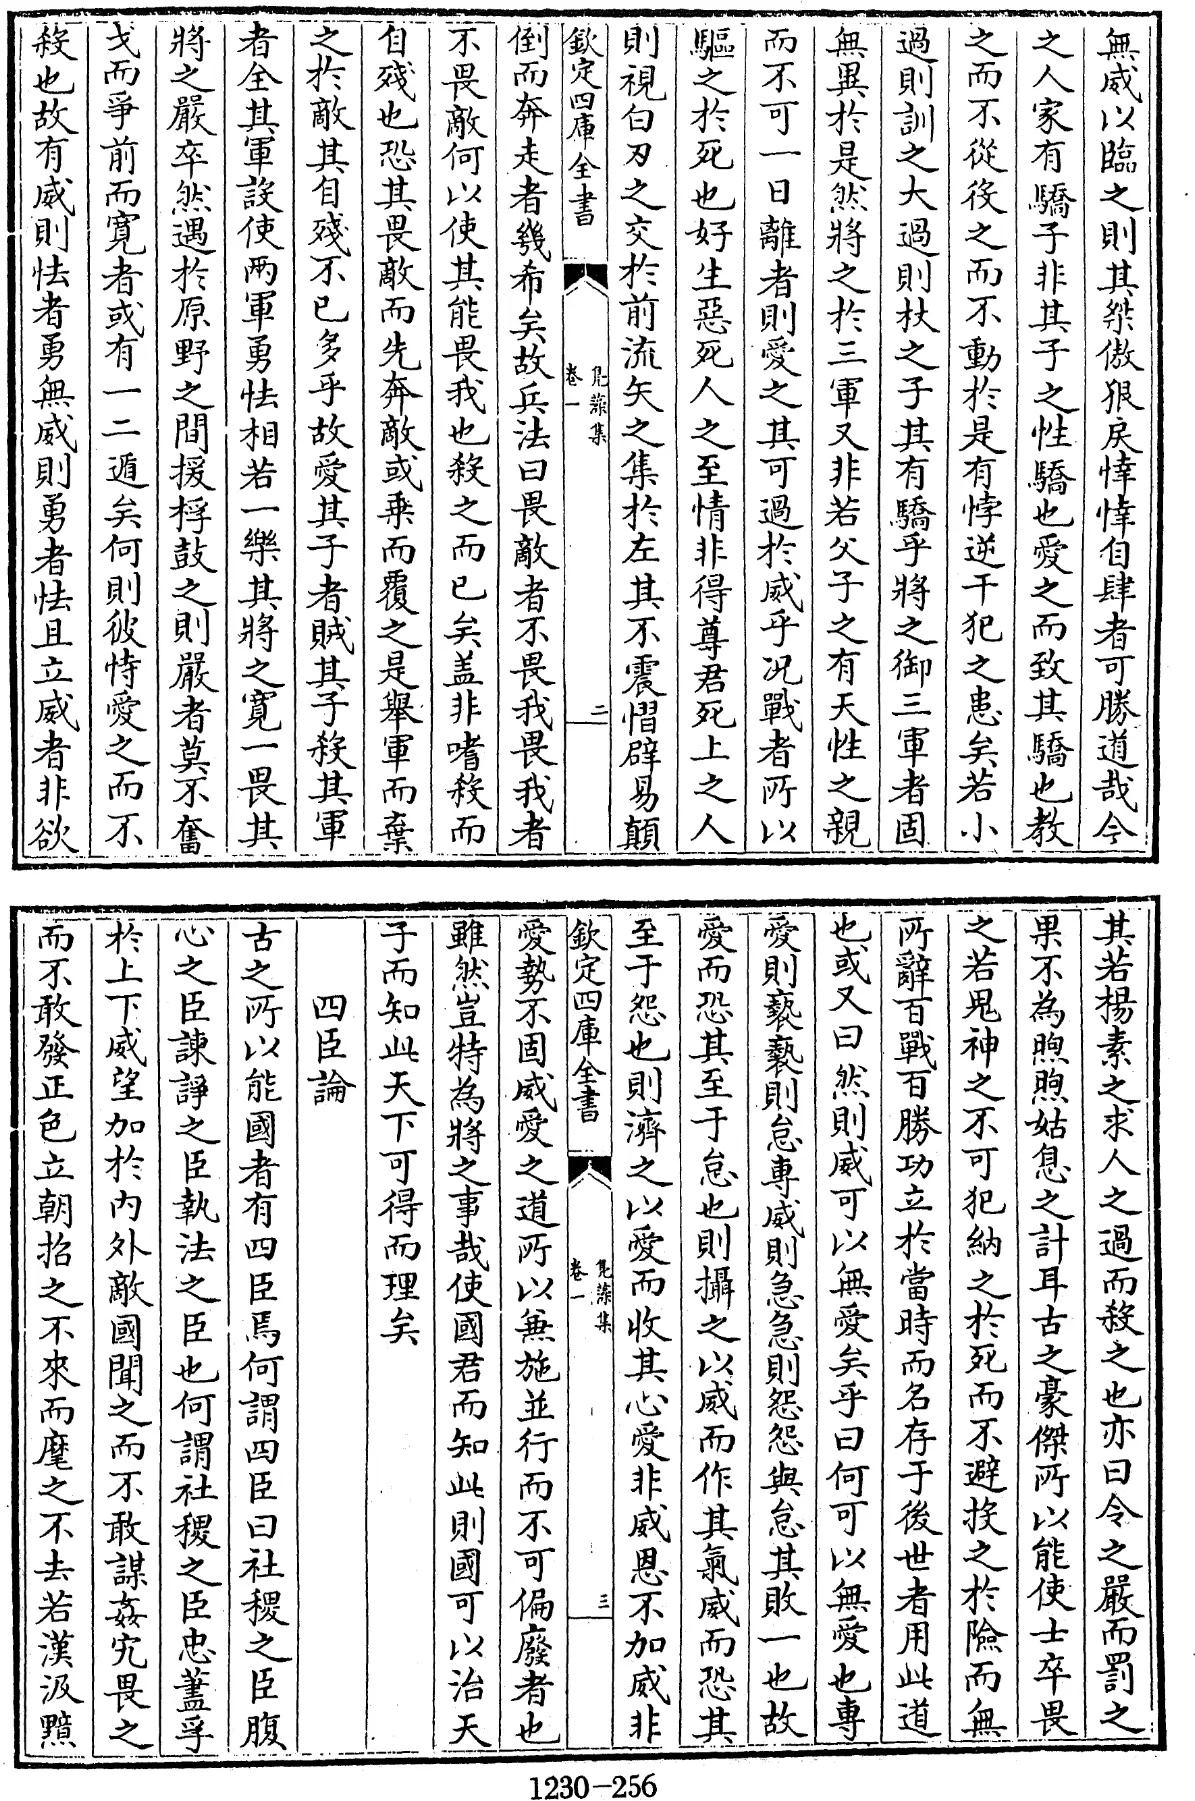 無威以臨之則其桀傲狠戾悻悻自肆者可勝道哉今
之人家有驕子非其子之性驕也愛之而致其驕也教
之而不從役之而不動於是有悖逆干犯之患矣若小
過則訓之大過則杖之子其有驕乎將之御三軍者固
無異於是然將之於三軍又非若父子之有天性之親
而不可一日離者則愛之其可過於威乎况戰者所以
驅之於死也好生惡死人之至情非得尊君死上之人
則視白刃之交於前流矢之集於左其不震慴辟易顛
欽定四庫全書
鳧藻集
卷一
二
倒而奔走者幾希矣故兵法曰畏敵者不畏我畏我者
不畏敵何以使其能畏我也殺之而已矣盖非嗜殺而
自殘也恐其畏敵而先奔敵或乗而覆之是舉軍而棄
之於敵其自殘不已多乎故愛其子者賊其子殺其軍
者全其軍設使两軍勇怯相若一樂其將之寛一畏其
將之嚴卒然遇於原野之間援桴鼓之則嚴者莫不奮
戈而爭前而寛者或有一二遁矣何則彼恃愛之而不
殺也故有威則怯者勇無威則勇者怯且立威者非欲
其若楊素之求人之過而殺之也亦曰令之嚴而罰之
果不為煦煦姑息之計耳古之豪傑所以能使士卒畏
之若鬼神之不可犯納之於死而不避挨之於險而無
所辭百戰百勝功立於當時而名存于後世者用此道
也或又曰然則威可以無愛矣乎曰何可以無愛也專
愛則褻褻則怠專威則急急則怨怨與怠其敗一也故
愛而恐其至于怠也則攝之以威而作其氣威而恐其
至于怨也則濟之以愛而收其心愛非威恩不加威非
欽定四庫全書
鳧藻集
卷一
三
愛勢不固威愛之道所以兼施並行而不可偏廢者也
雖然豈特為將之事哉使國君而知此則國可以治天
子而知此天下可得而理矣
四臣論
古之所以能國者有四臣焉何謂四臣曰社稷之臣腹
心之臣諫諍之臣執法之臣也何謂社稷之臣忠藎孚
於上下威望加於内外敵國聞之而不敢謀姦宄畏之
而不敢發正色立朝招之不來而麾之不去若漢汲黯
1230－256